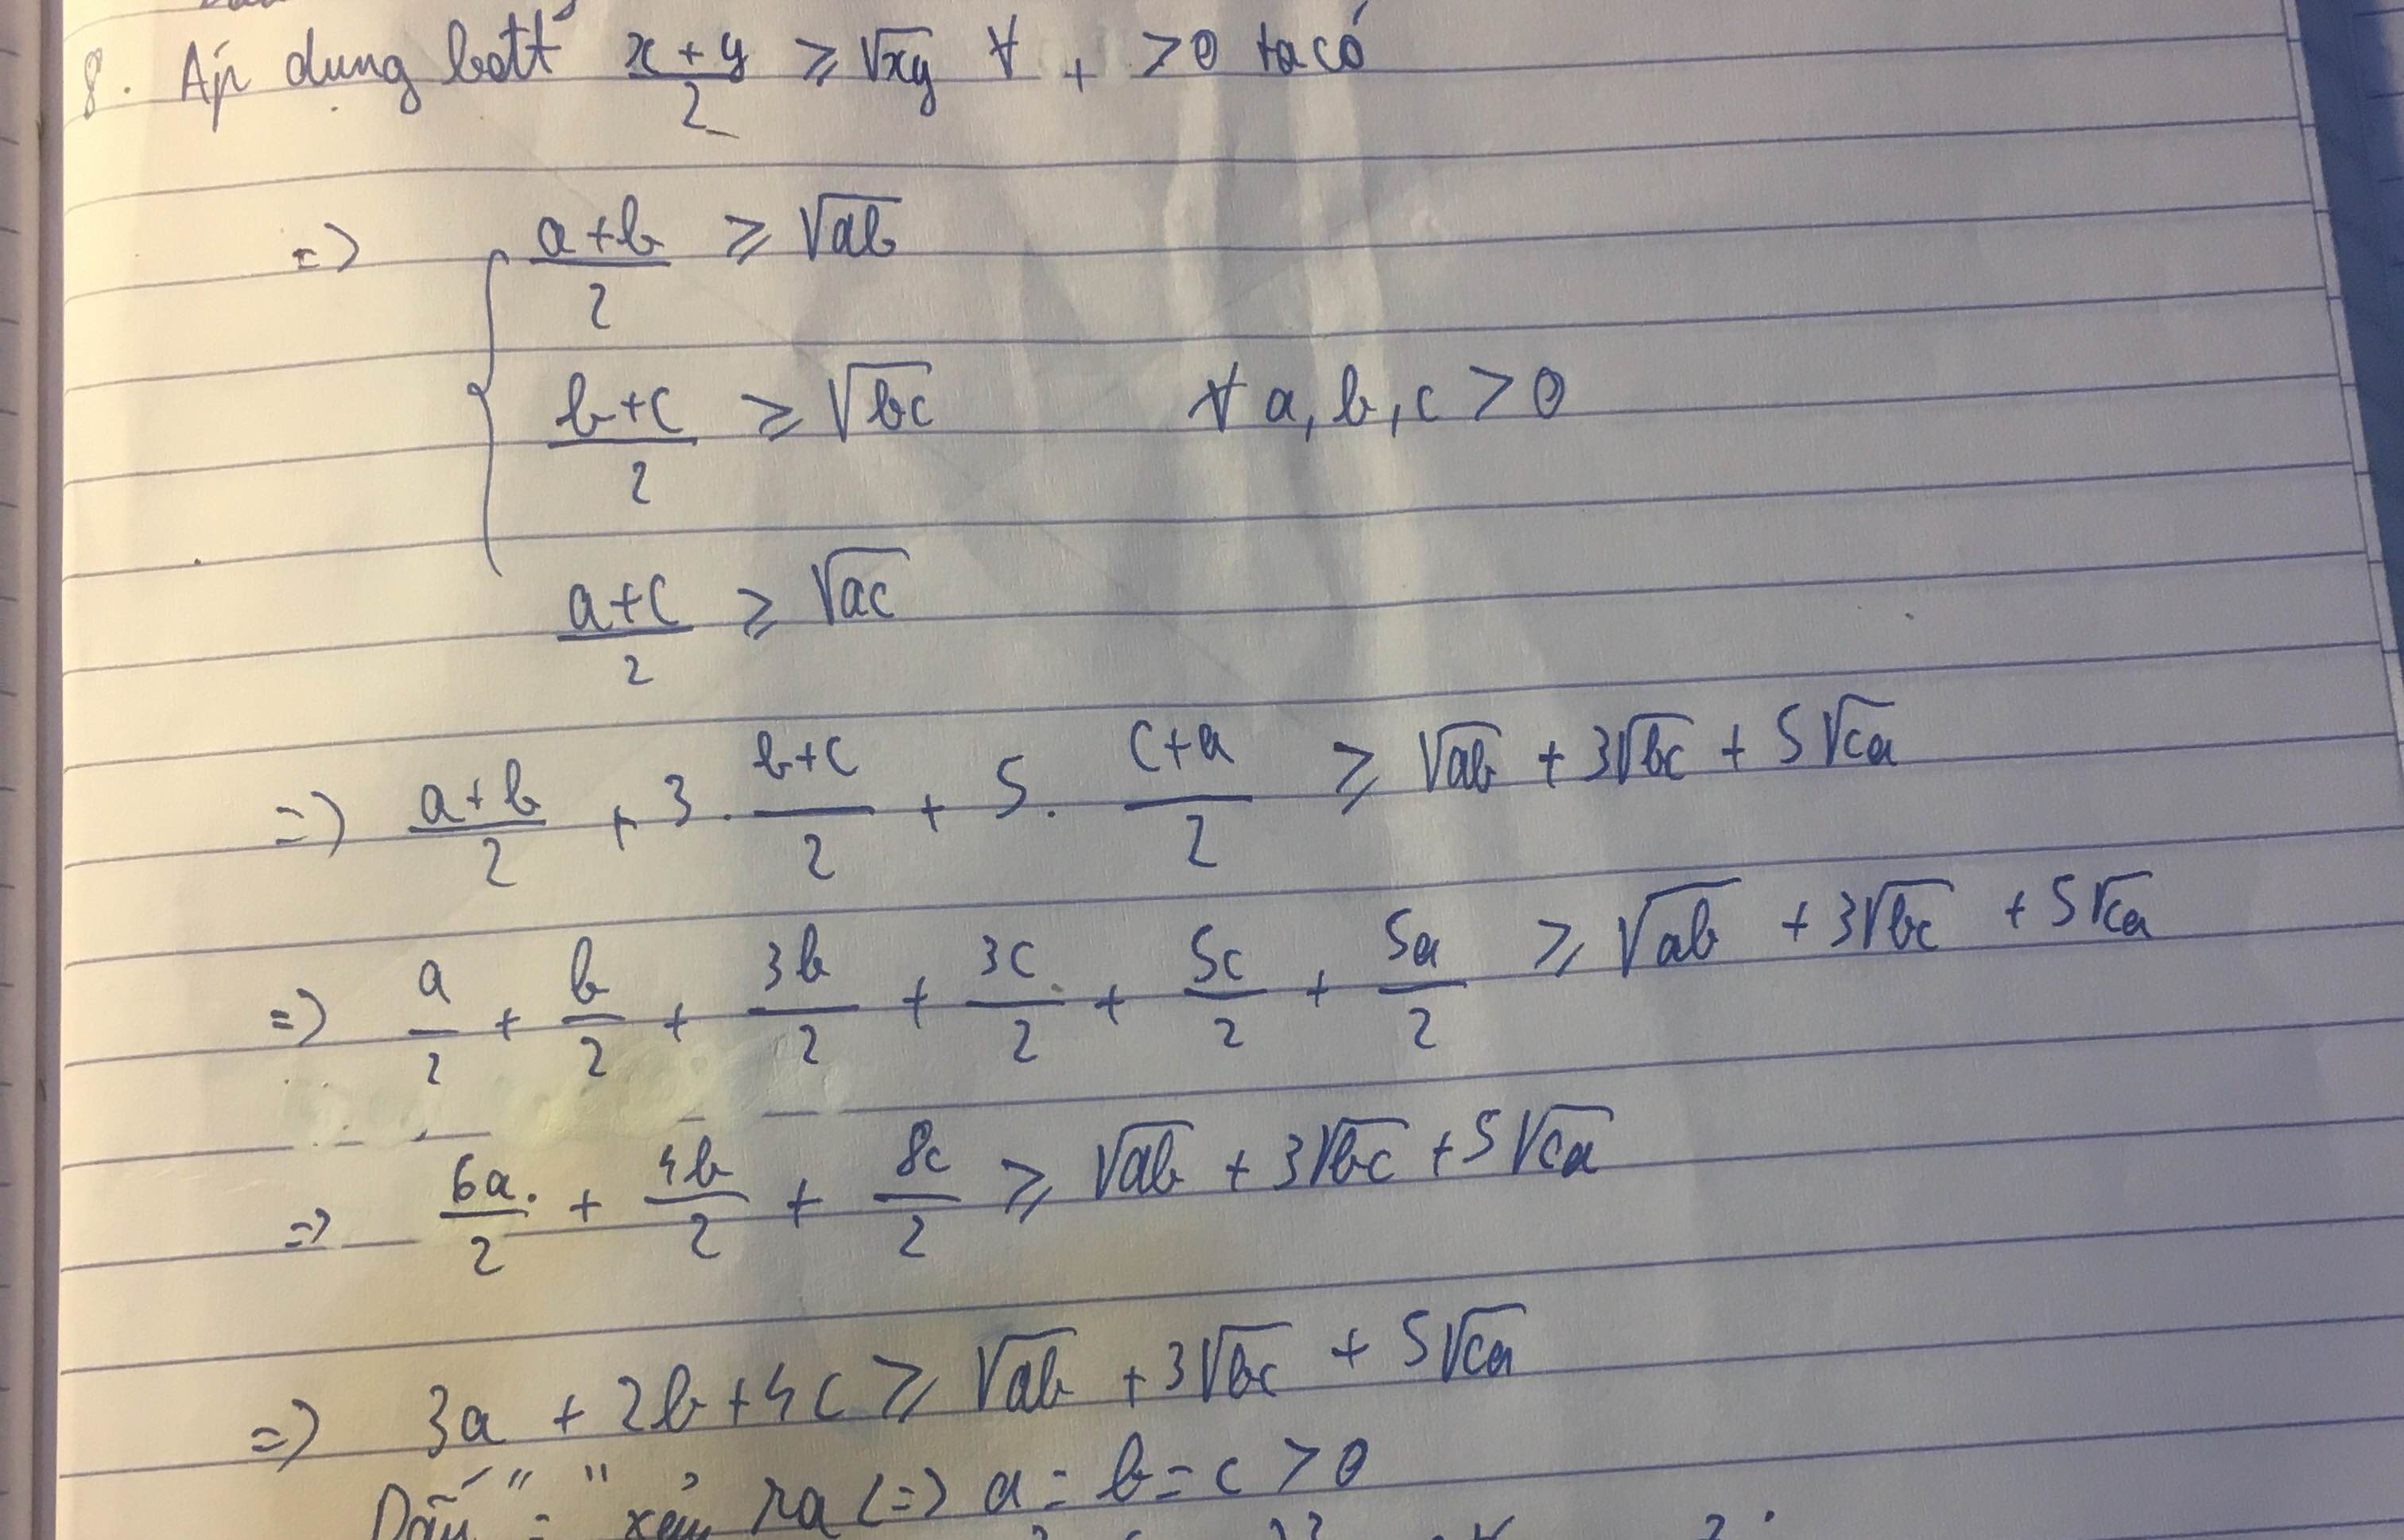 8. Áp dụng bđtt x+y/2 ≥ √xy ∀ , >0 ta có
=> a+b/2 ≥ √ab
b+c/2 ≥ √bc ∀ a, b, c > 0
a+c/2 ≥ √ac
=> a+b/2 + 3. b+c/2 + 5. c+a/2 ≥ √ab + 3√bc + 5√ca
=> a/2 + b/2 + 3b/2 + 3c/2 + 5c/2 + 5a/2 ≥ √ab + 3√bc + 5√ca
=> 6a/2 + 4b/2 + 8c/2 ≥ √ab + 3√bc + 5√ca
=> 3a + 2b + 4c ≥ √ab + 3√bc + 5√ca
Dấu "=" xảy ra <=> a = b = c > 0